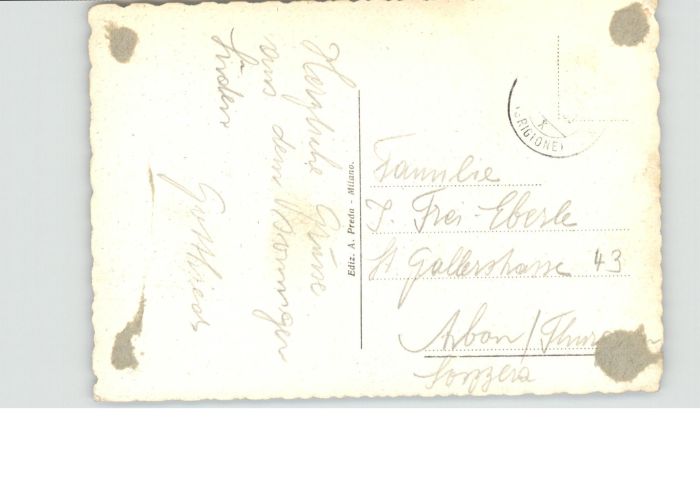 Herzliche Grüsse
aus dem sonnigen
Süden
Gottfried
Ediz. A. Preda - Milano.
(GRIGIONE)
Familie
J. Frei-Eberle
St Gallerstrasse 43
Arbon / Thurgau
Svizzera